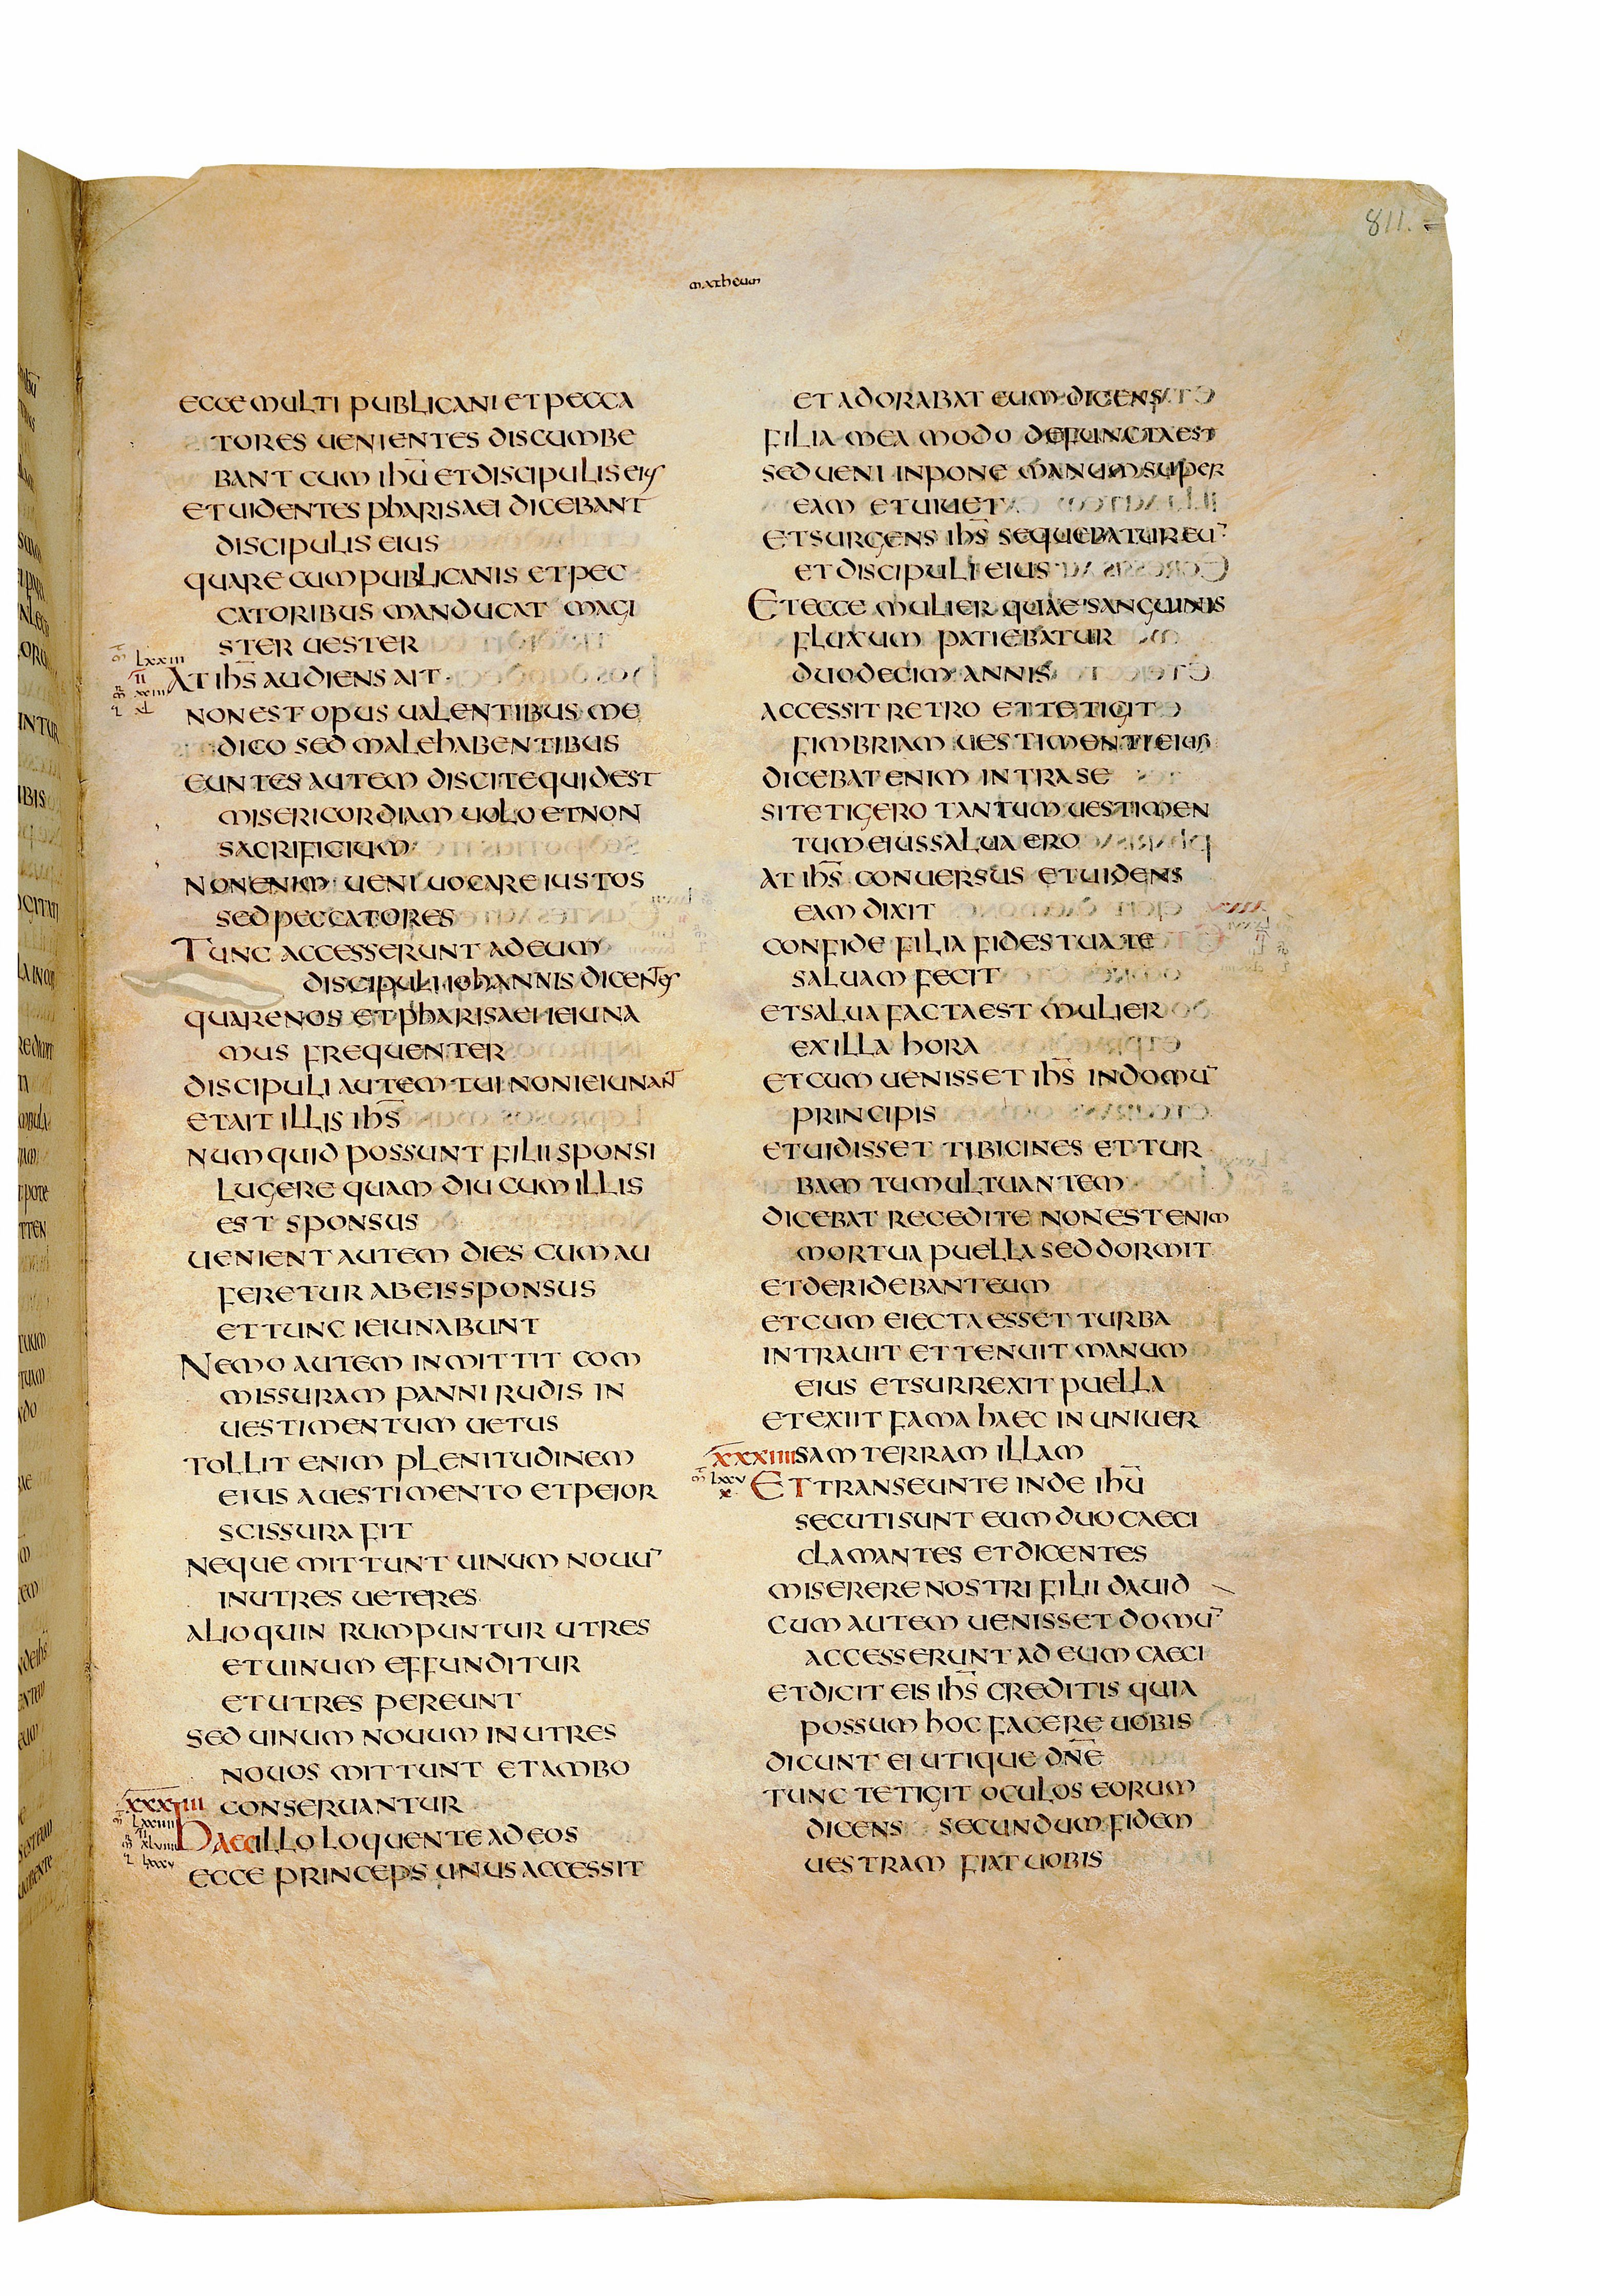 811.
matheum
ecce multi publicani et pecca
tores uenientes discumbe
bant cum ihū et discipulis eius
et uidentes pharisaei dicebant
discipulis eius
quare cum publicanis et pec
catoribus manducat magi
ster uester
lxxiii
ii
At ihs̄ audiens ait
xxiii
xl
non est opus ualentibus me
dico sed male habentibus
euntes autem discite quid est
misericordiam uolo et non
sacrificium
non enim ueni uocare iustos
sed peccatores
Tunc accesserunt ad eum
discipuli iohannis dicentes
quare nos et pharisaei ieiuna
mus frequenter
discipuli autem tui non ieiunant
et ait illis ihs̄
numquid possunt filii sponsi
lugere quam diu cum illis
est sponsus
uenient autem dies cum au
feretur ab eis sponsus
et tunc ieiunabunt
Nemo autem inmittit com
missuram panni rudis in
uestimentum uetus
tollit enim plenitudinem
eius a uestimento et peior
scissura fit
neque mittunt uinum nouū
in utres ueteres
alioquin rumpuntur utres
et uinum effunditur
et utres pereunt
sed uinum nouum in utres
nouos mittunt et ambo
xxxiii conseruantur
lxxiiii
ii
xlviiii
lxxxv
Haec illo loquente ad eos
ecce princeps unus accessit
et adorabat eum dicens
filia mea modo defuncta est
sed ueni inpone manum super
eam et uiuet
et surgens ihs̄ sequebatur eū
et discipuli eius
Et ecce mulier quae sanguinis
fluxum patiebatur
duodecim annis
accessit retro et tetigit
fimbriam uestimenti eius
dicebat enim intra se
si tetigero tantum uestimen
tum eius salua ero
at ihs̄ conuersus et uidens
eam dixit
confide filia fides tua te
saluam fecit
et salua facta est mulier
ex illa hora
et cum uenisset ihs̄ in domū
principis
et uidisset tibicines et tur
bam tumultuantem
dicebat recedite non est enim
mortua puella sed dormit
et deridebant eum
et cum eiecta esset turba
intrauit et tenuit manum
eius et surrexit puella
et exiit fama haec in uniuer
xxxiiii sam terram illam
lxxv
x
Et transeunte inde ihū
secuti sunt eum duo caeci
clamantes et dicentes
miserere nostri fili dauid
cum autem uenisset domū
accesserunt ad eum caeci
et dicit eis ihs̄ creditis quia
possum hoc facere uobis
dicunt ei utique dn̄e
tunc tetigit oculos eorum
dicens secundum fidem
uestram fiat uobis